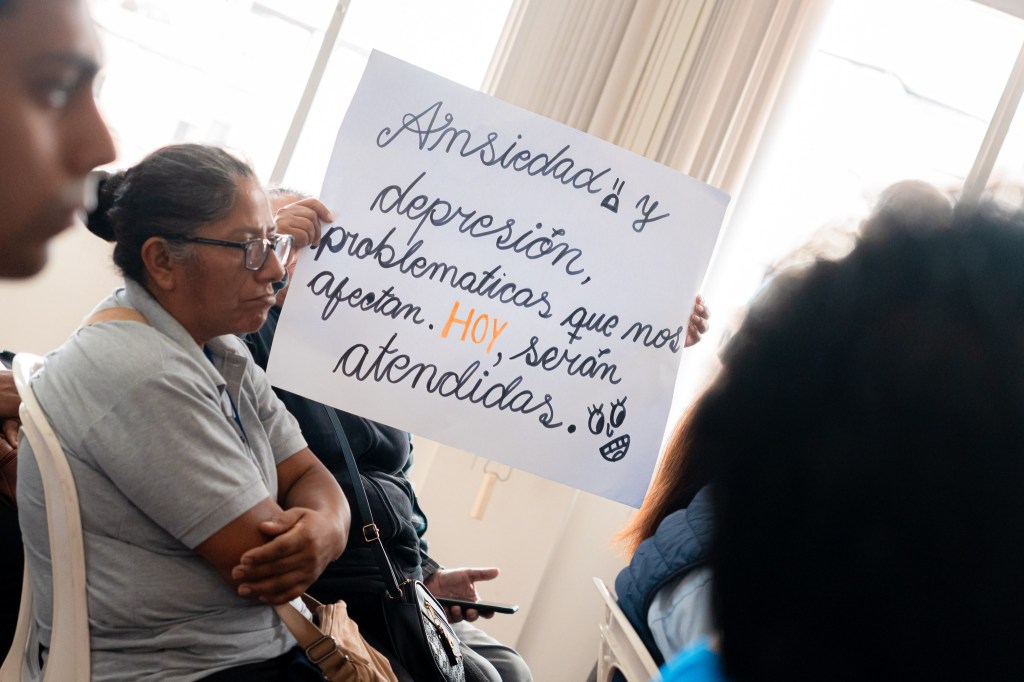 Ansiedad y
depresión,
problematicas que nos
afectan. HOY, serán
atendidas.